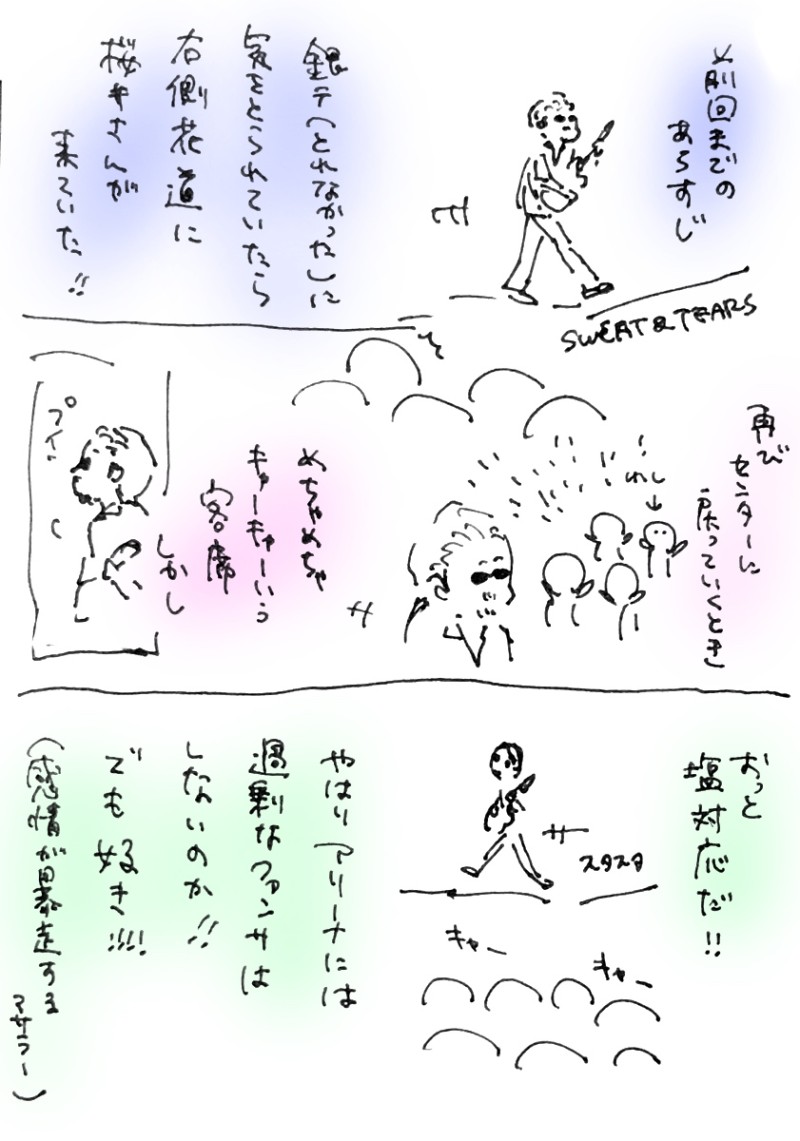 前回までの
あらすじ
SWEAT & TEARS
銀テ(とれなかった)に
気をとられていたら
右側花道に
桜井さんが
来ていた!!
再び
センターに
戻っていくとき
わし
めちゃめちゃ
キャーキャーいう
客席
しかし
プイ
おっと
塩対応だ!!
スタスタ
キャー
キャー
やはりアリーナには
過剰なファンサは
しないのか!!
でも好き!!!!
(感情が暴走する
マサラー)